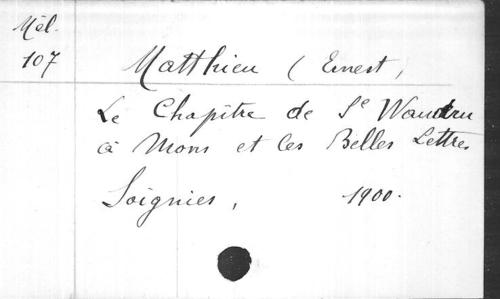 Mél.
107
Matthieu (Ernest,
Le Chapitre de Ste Waudru
à Mons et les Belles Lettres
Soignies, 1900.